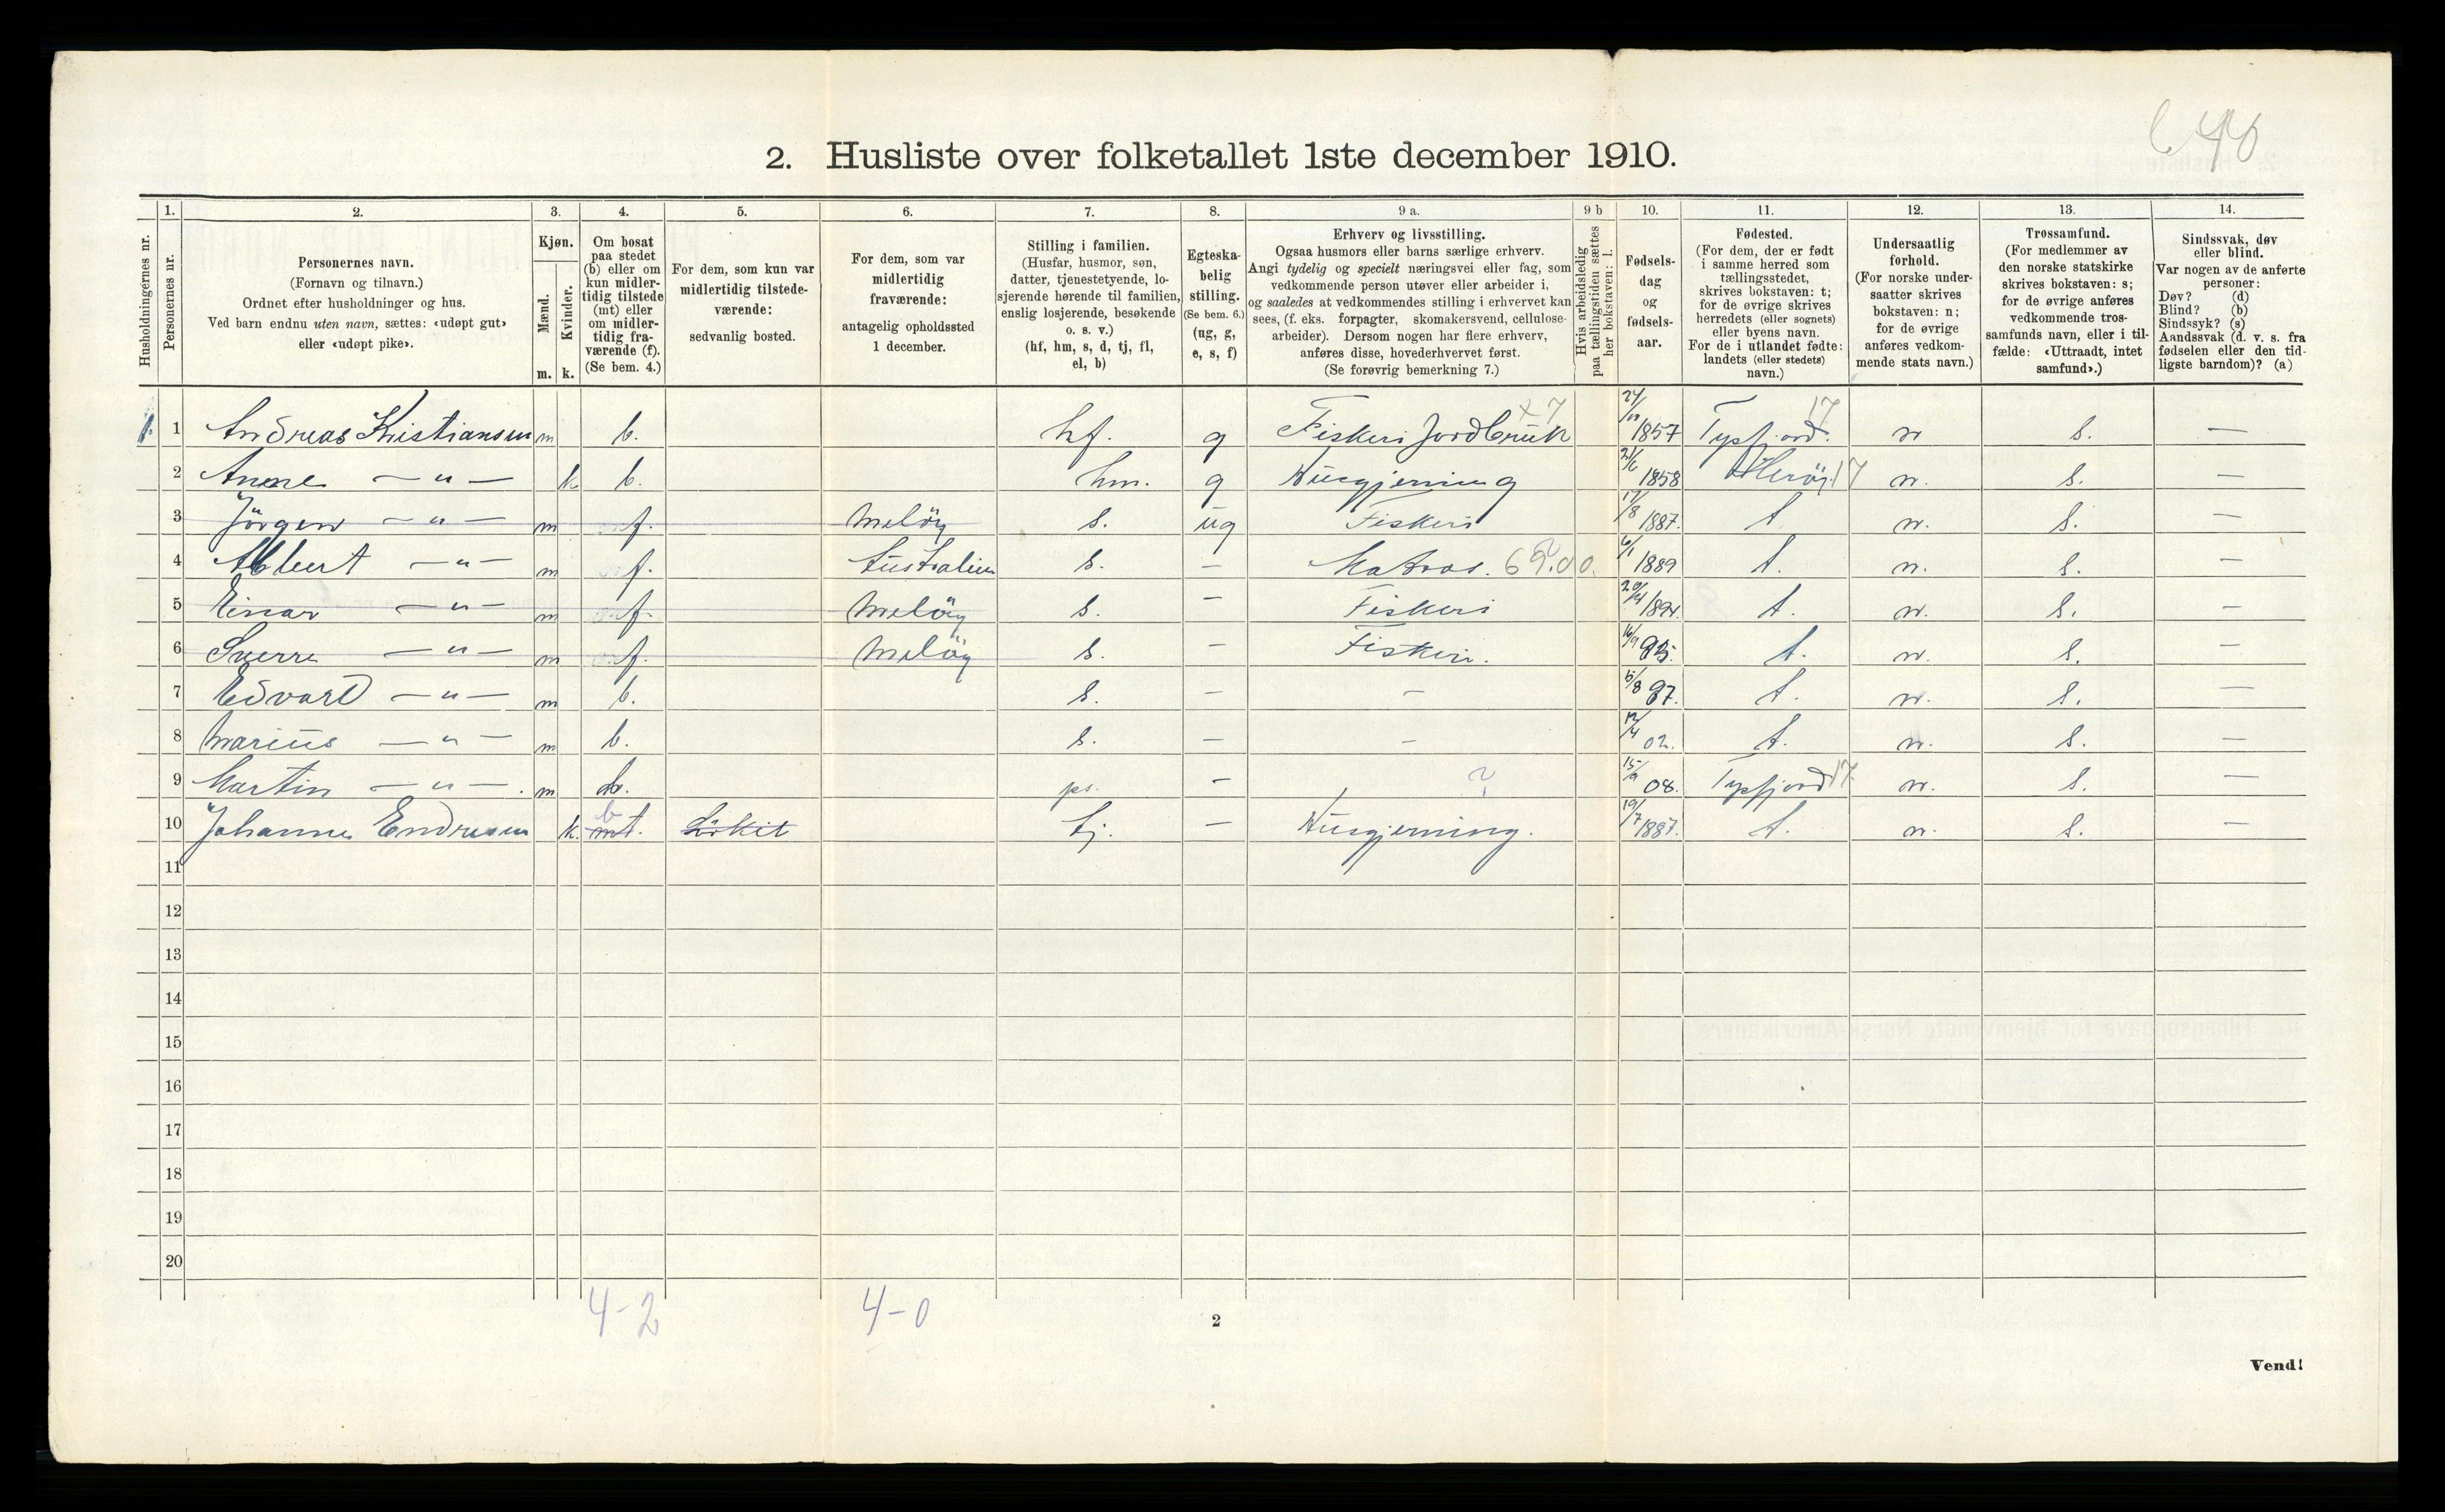 640
2. Husliste over folketallet 1ste december 1910.
Husholdningernes nr.
1. Personernes nr.
2. Personernes navn.
(Fornavn og tilnavn.)
Ordnet efter husholdninger og hus.
Ved barn endnu uten navn, sættes: «udøpt gut»
eller «udøpt pike».
3. Kjøn.
Mænd. Kvinder.
m. k.
4. Om bosat
paa stedet
(b) eller om
kun midler-
tidig tilstede
(mt) eller
om midler-
tidig fra-
værende (f).
(Se bem. 4.)
5. For dem, som kun var
midlertidig tilstede-
værende:
sedvanlig bosted.
6. For dem, som var
midlertidig
fraværende:
antagelig opholdssted
1 december.
7. Stilling i familien.
(Husfar, husmor, søn,
datter, tjenestetyende, lo-
sjerende hørende til familien,
enslig losjerende, besøkende
o. s. v.)
(hf, hm, s, d, tj, fl,
el, b)
8. Egteska-
belig
stilling.
(Se bem. 6.)
(ug, g,
e, s, f)
9 a. Erhverv og livsstilling.
Ogsaa husmors eller barns særlige erhverv.
Angi tydelig og specielt næringsvei eller fag, som
vedkommende person utøver eller arbeider i,
og saaledes at vedkommendes stilling i erhvervet kan
sees, (f. eks. forpagter, skomakersvend, cellulose-
arbeider). Dersom nogen har flere erhverv,
anføres disse, hovederhvervet først.
(Se forøvrig bemerkning 7.)
9 b Hvis arbeidsledig
paa tællingstiden sættes
her bokstaven: l.
10. Fødsels-
dag
og
fødsels-
aar.
11. Fødested.
(For dem, der er født
i samme herred som
tællingsstedet,
skrives bokstaven: t;
for de øvrige skrives
herredets (eller sognets)
eller byens navn.
For de i utlandet fødte:
landets (eller stedets)
navn.)
12. Undersaatlig
forhold.
(For norske under-
saatter skrives
bokstaven: n;
for de øvrige
anføres vedkom-
mende stats navn.)
13. Trossamfund.
(For medlemmer av
den norske statskirke
skrives bokstaven: s;
for de øvrige anføres
vedkommende tros-
samfunds navn, eller i til-
fælde: «Uttraadt, intet
samfund».)
14. Sindssvak, døv
eller blind.
Var nogen av de anførte
personer:
Døv? (d)
Blind? (b)
Sindssyk? (s)
Aandssvak (d. v. s. fra
fødselen eller den tid-
ligste barndom)? (a)
1. 1 Andreas Kristiansen m b. hf. g Fiskeri Jordbruk 1857 Tysfjord. 17 n s. —
2 Anne —"— k b. hm. g Husgjerning 21/6 1858 Herøy 17 n. s. —
3 Jörgen —"— m f. Melöy s. ug Fiskeri 17/8 1887. t n. s. —
4 Albert —"— m f. Australien s. — Matros. 6/1 1889 t. n. s. —
5 Einar —"— m f. Melöy s. — Fiskeri t. n. s. —
6 Sverre —"— m f. Melöy s. — Fiskeri. 16/9 95. t. n. s. —
7 Edvart —"— m b. s. — — 5/8 97. t. n. s. —
8 Marius —"— m b. s. — — 12/4 02. t. n. s. —
9 Martin —"—. m b. ps. — ? 15/9 08. Tysfjord 17 n. s. —
10 Johanne Endresen k. mt. b tj. — Husgjerning. 19/7 1887. t. n. s. —
11
12
13
14
15
16
17
18
19
20
4-2 4-0
2
Vend!